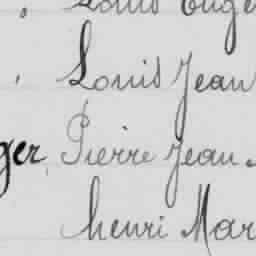 Louis Eugè
Louis Jean
ger Pierre Jean
henri Mar